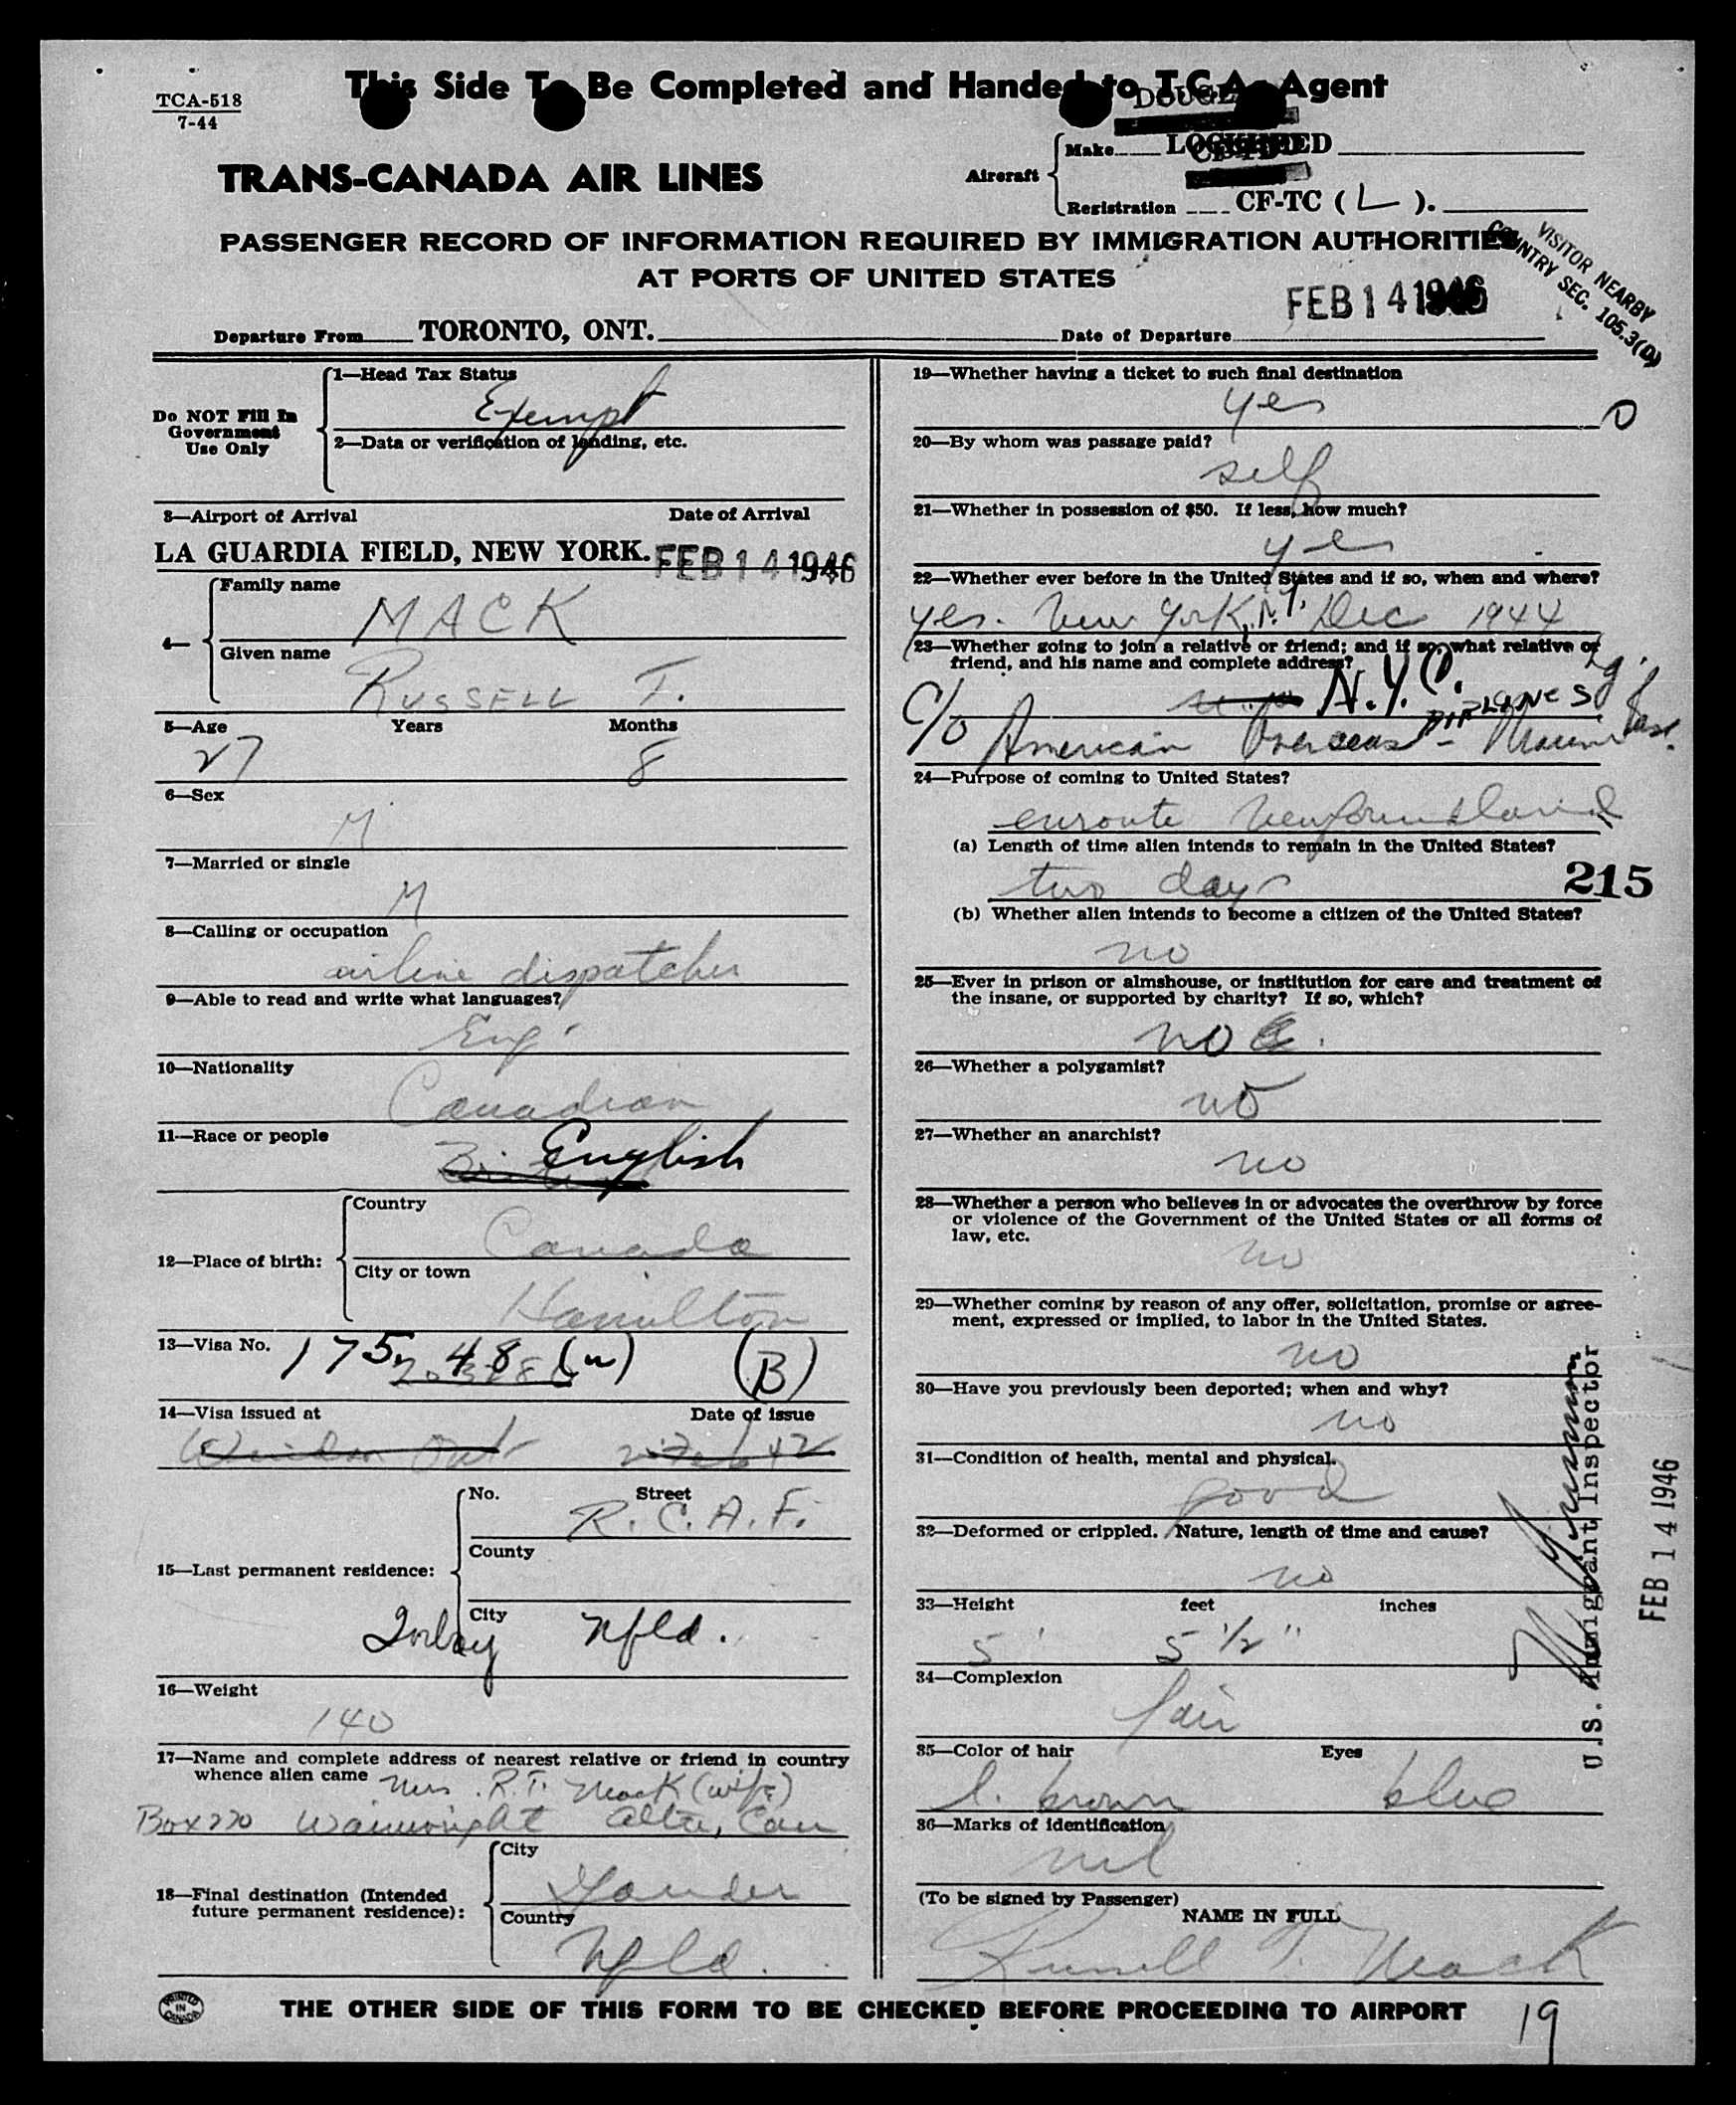 This Side To Be Completed and Handed to T.C.A. Agent
TCA-518
7-44
TRANS-CANADA AIR LINES
Aircraft
Make LOCKHEED
Registration CF-TC ( L ).
PASSENGER RECORD OF INFORMATION REQUIRED BY IMMIGRATION AUTHORITIES
AT PORTS OF UNITED STATES
VISITOR NEARBY
COUNTRY SEC. 105.3(D)
Departure From TORONTO, ONT. Date of Departure FEB 14 1946
Do NOT Fill In
Government
Use Only
1—Head Tax Status
Exempt
2—Data or verification of landing, etc.
3—Airport of Arrival Date of Arrival
LA GUARDIA FIELD, NEW YORK. FEB 14 1946
4—
Family name
MACK
Given name
RUSSELL T.
5—Age Years Months
27 8
6—Sex
M
7—Married or single
M
8—Calling or occupation
airline dispatcher
9—Able to read and write what languages?
Eng.
10—Nationality
Canadian
11—Race or people
English
12—Place of birth:
Country
Canada
City or town
Hamilton
13—Visa No. 175. 48 (B)
14—Visa issued at Date of issue
Windsor Ont Feb 42
15—Last permanent residence:
No. Street
R.C.A.F.
County
City
Torbay Nfld.
16—Weight
140
17—Name and complete address of nearest relative or friend in country
whence alien came Mrs. R.T. Mack (wife)
Box 270 Wainwright Alta, Can
18—Final destination (Intended
future permanent residence):
City
Gander
Country
Nfld.
19—Whether having a ticket to such final destination
yes
0
20—By whom was passage paid?
self
21—Whether in possession of $50. If less, how much?
yes
22—Whether ever before in the United States and if so, when and where?
yes. New York, N.Y. Dec 1944
23—Whether going to join a relative or friend; and if so, what relative or
friend, and his name and complete address?
N.Y.C.
c/o American Overseas AIRLINES
24—Purpose of coming to United States?
enroute Newfoundland
(a) Length of time alien intends to remain in the United States?
two days
215
(b) Whether alien intends to become a citizen of the United States?
no
25—Ever in prison or almshouse, or institution for care and treatment of
the insane, or supported by charity? If so, which?
no
26—Whether a polygamist?
no
27—Whether an anarchist?
no
28—Whether a person who believes in or advocates the overthrow by force
or violence of the Government of the United States or all forms of
law, etc.
no
29—Whether coming by reason of any offer, solicitation, promise or agree-
ment, expressed or implied, to labor in the United States.
no
30—Have you previously been deported; when and why?
no
31—Condition of health, mental and physical.
good
32—Deformed or crippled. Nature, length of time and cause?
no
33—Height feet inches
5' 5 1/2"
34—Complexion
fair
35—Color of hair Eyes
l. brown blue
36—Marks of identification
nil
(To be signed by Passenger)
NAME IN FULL
Russell T. Mack
U.S. Immigrant Inspector
FEB 14 1946
PRINTED
IN
CANADA
THE OTHER SIDE OF THIS FORM TO BE CHECKED BEFORE PROCEEDING TO AIRPORT
19